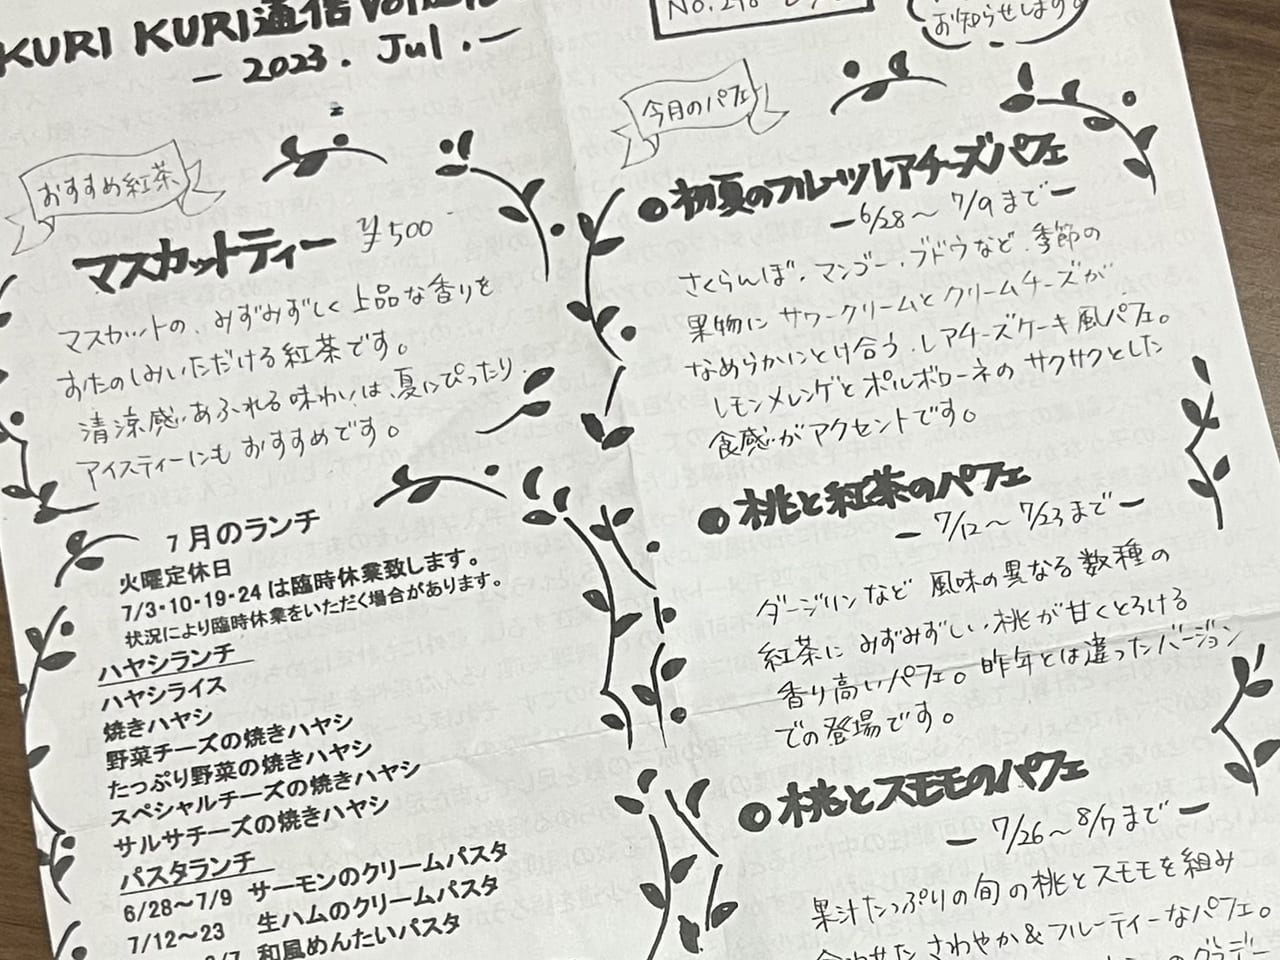 KURI KURI通信
— 2023. Jul. —
おすすめ紅茶
マスカットティー ¥500
マスカットの、みずみずしく上品な香りを
おたのしみいただける紅茶です。
清涼感あふれる味わいは、夏にぴったり。
アイスティーにもおすすめです。
7月のランチ
火曜定休日
7/3・10・19・24は臨時休業致します。
状況により臨時休業をいただく場合があります。
ハヤシランチ
ハヤシライス
焼きハヤシ
野菜チーズの焼きハヤシ
たっぷり野菜の焼きハヤシ
スペシャルチーズの焼きハヤシ
サルサチーズの焼きハヤシ
パスタランチ
6/28～7/9 サーモンのクリームパスタ
7/12～23 生ハムのクリームパスタ
和風めんたいパスタ
お知らせします
今月のパフェ
●初夏のフルーツレアチーズパフェ
— 6/28～7/9まで —
さくらんぼ・マンゴー・ブドウなど、季節の
果物にサワークリームとクリームチーズが
なめらかにとけ合う、レアチーズケーキ風パフェ。
レモンメレンゲとポルボローネのサクサクとした
食感がアクセントです。
●桃と紅茶のパフェ
— 7/12～7/23まで —
ダージリンなど風味の異なる数種の
紅茶にみずみずしい桃が甘くとろける
香り高いパフェ。昨年とは違ったバージョン
での登場です。
●桃とスモモのパフェ
— 7/26～8/7まで —
果汁たっぷりの旬の桃とスモモを組み
合わせたさわやか&フルーティーなパフェ。